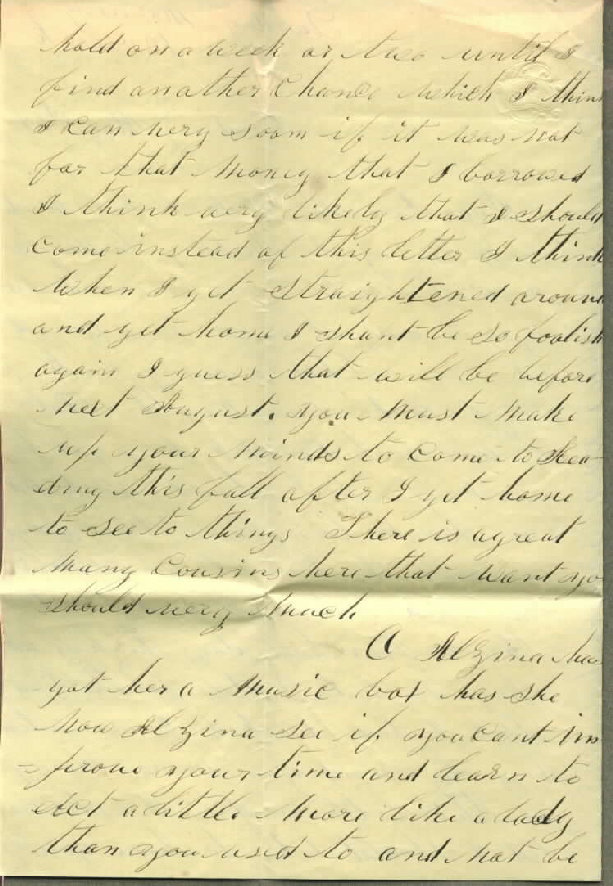 hold on a week or two until I
find another chance which I think
I can very soon if it was not
for that money that I borrowed
I think very likely that I should
come instead of this letter I think
when I get straightened around
and get home I shant be so foolish
again I guess that will be before
next August. you must make
up your minds to come to
this fall after I get home
to see to things There is a great
many cousins here that want you
should very much
O Alzina has
got her a music box has she
Now Alzina see if you cant im
=prove your time and learn to
act a little more like a lady
than you used to and not be